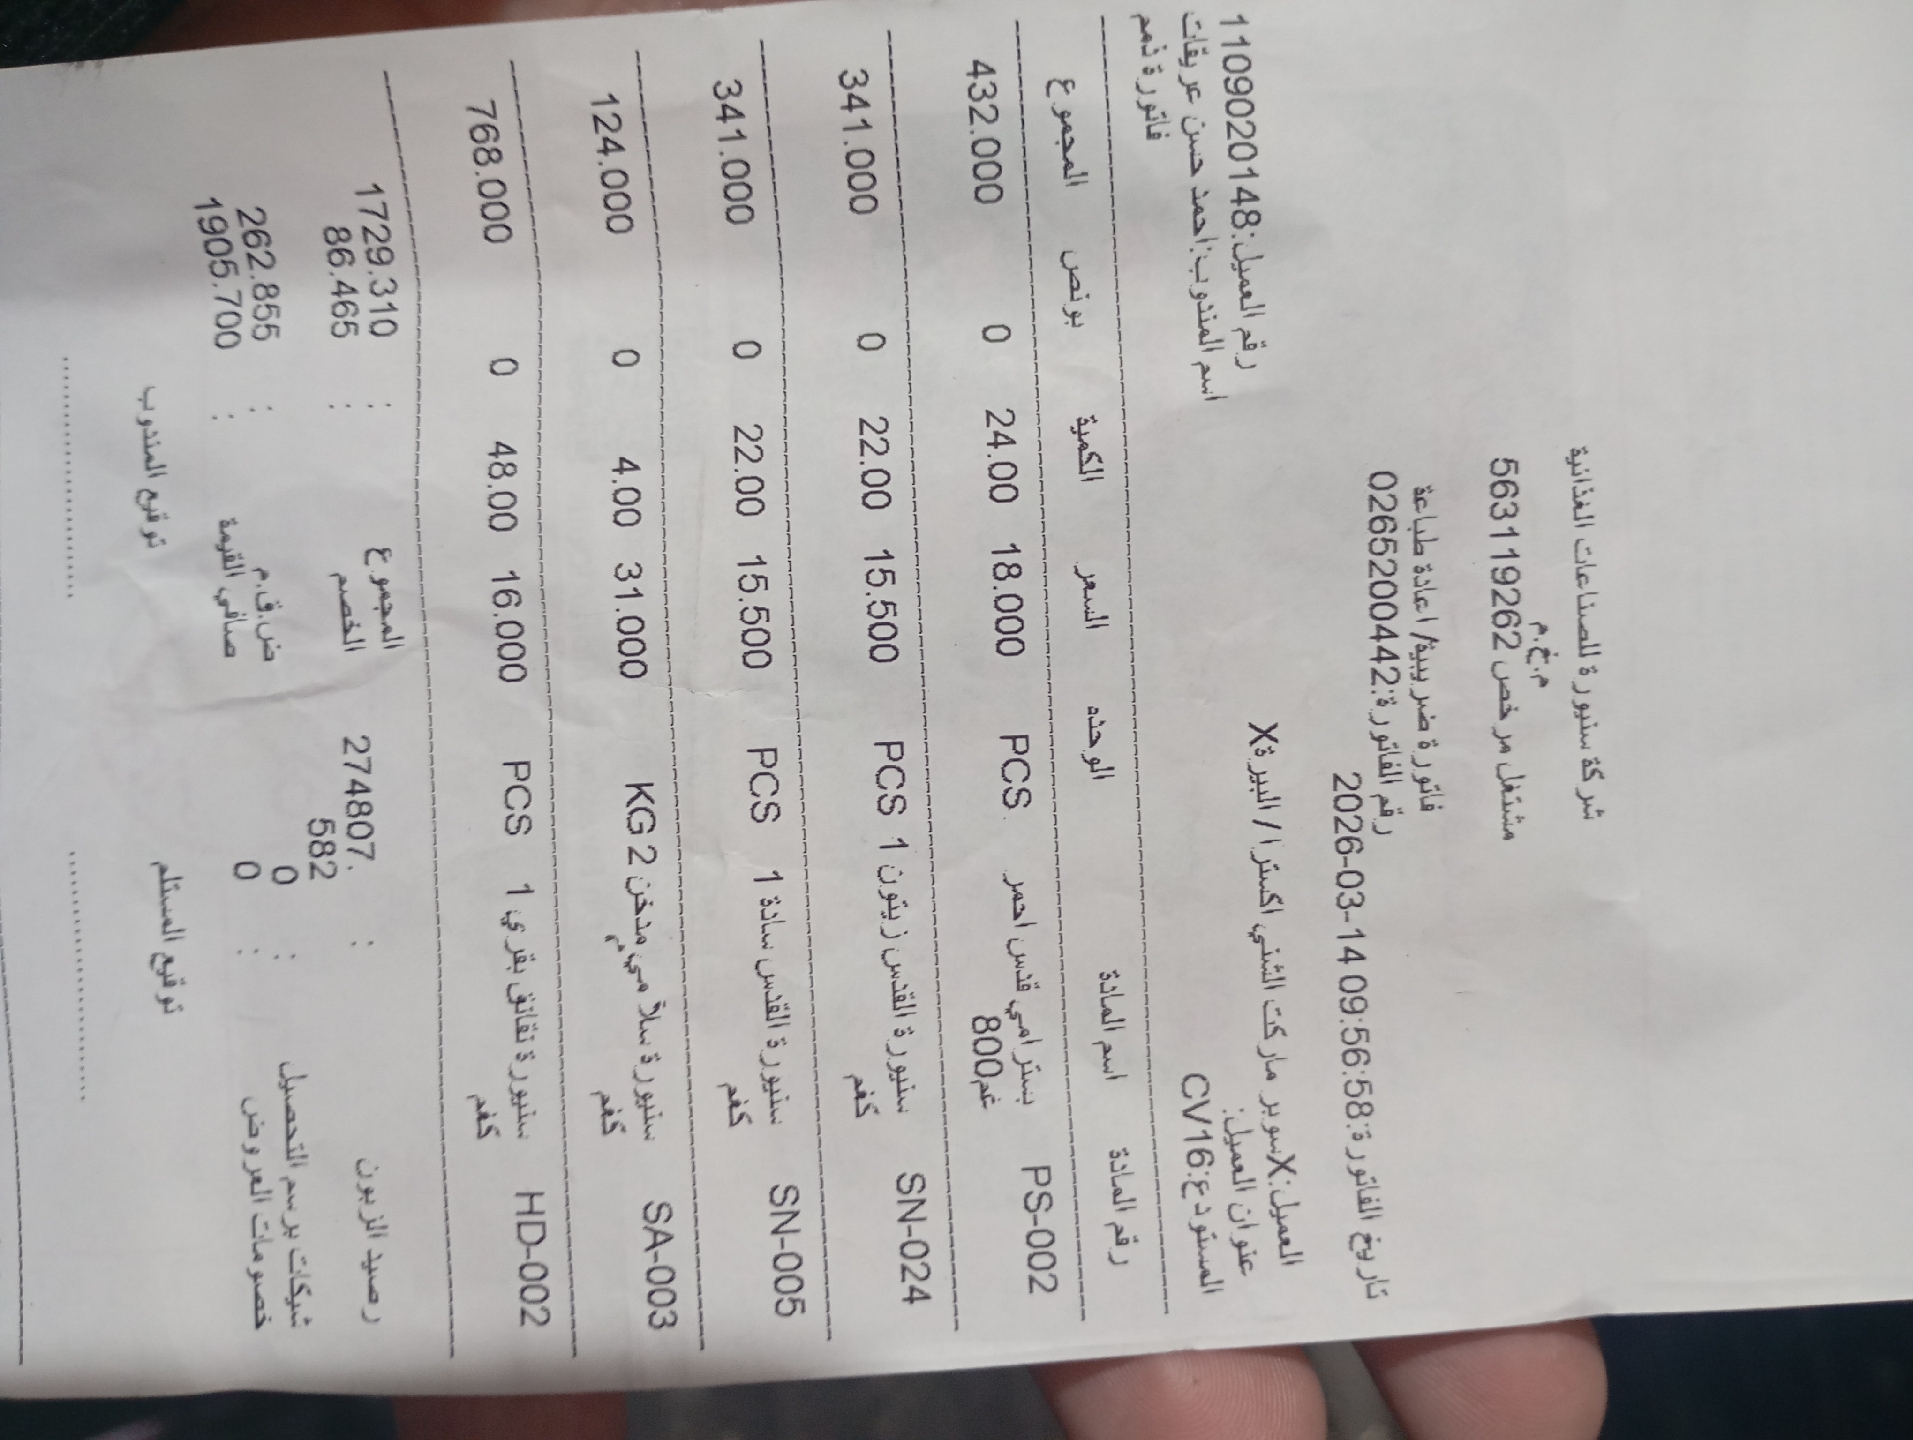 شركة سنيورة للصناعات الغذائية
م.خ.م
مشتغل مرخص 563119262
فاتورة ضريبية/ اعادة طباعة
رقم الفاتورة:0265200442
تاريخ الفاتورة:2026-03-14 09:56:58
العميل:Xسوبر ماركت الشني اكسترا / البيرةX
رقم العميل:1109020148 عنوان العميل:
اسم المندوب:احمد حسن عريقات المستودع:CV16
فاتورة ذمم
رقم المادة اسم المادة الوحده السعر الكمية بونص المجموع
PS-002 بسترامي قدس احمر PCS 18.000 24.00 0 432.000
800غم
SN-024 سنيورة القدس زيتون 1 PCS 15.500 22.00 0 341.000
كغم
SN-005 سنيورة القدس سادة 1 PCS 15.500 22.00 0 341.000
كغم
SA-003 سنيورة سلامي مدخن 2 KG 31.000 4.00 0 124.000
كغم
HD-002 سنيورة نقانق بقري 1 PCS 16.000 48.00 0 768.000
كغم
رصيد الزبون : 274807. المجموع : 1729.310
582 الخصم : 86.465
شيكات برسم التحصيل : 0 ض.ق.م : 262.855
خصومات العروض : 0 صافي القيمة : 1905.700
توقيع المستلم توقيع المندوب